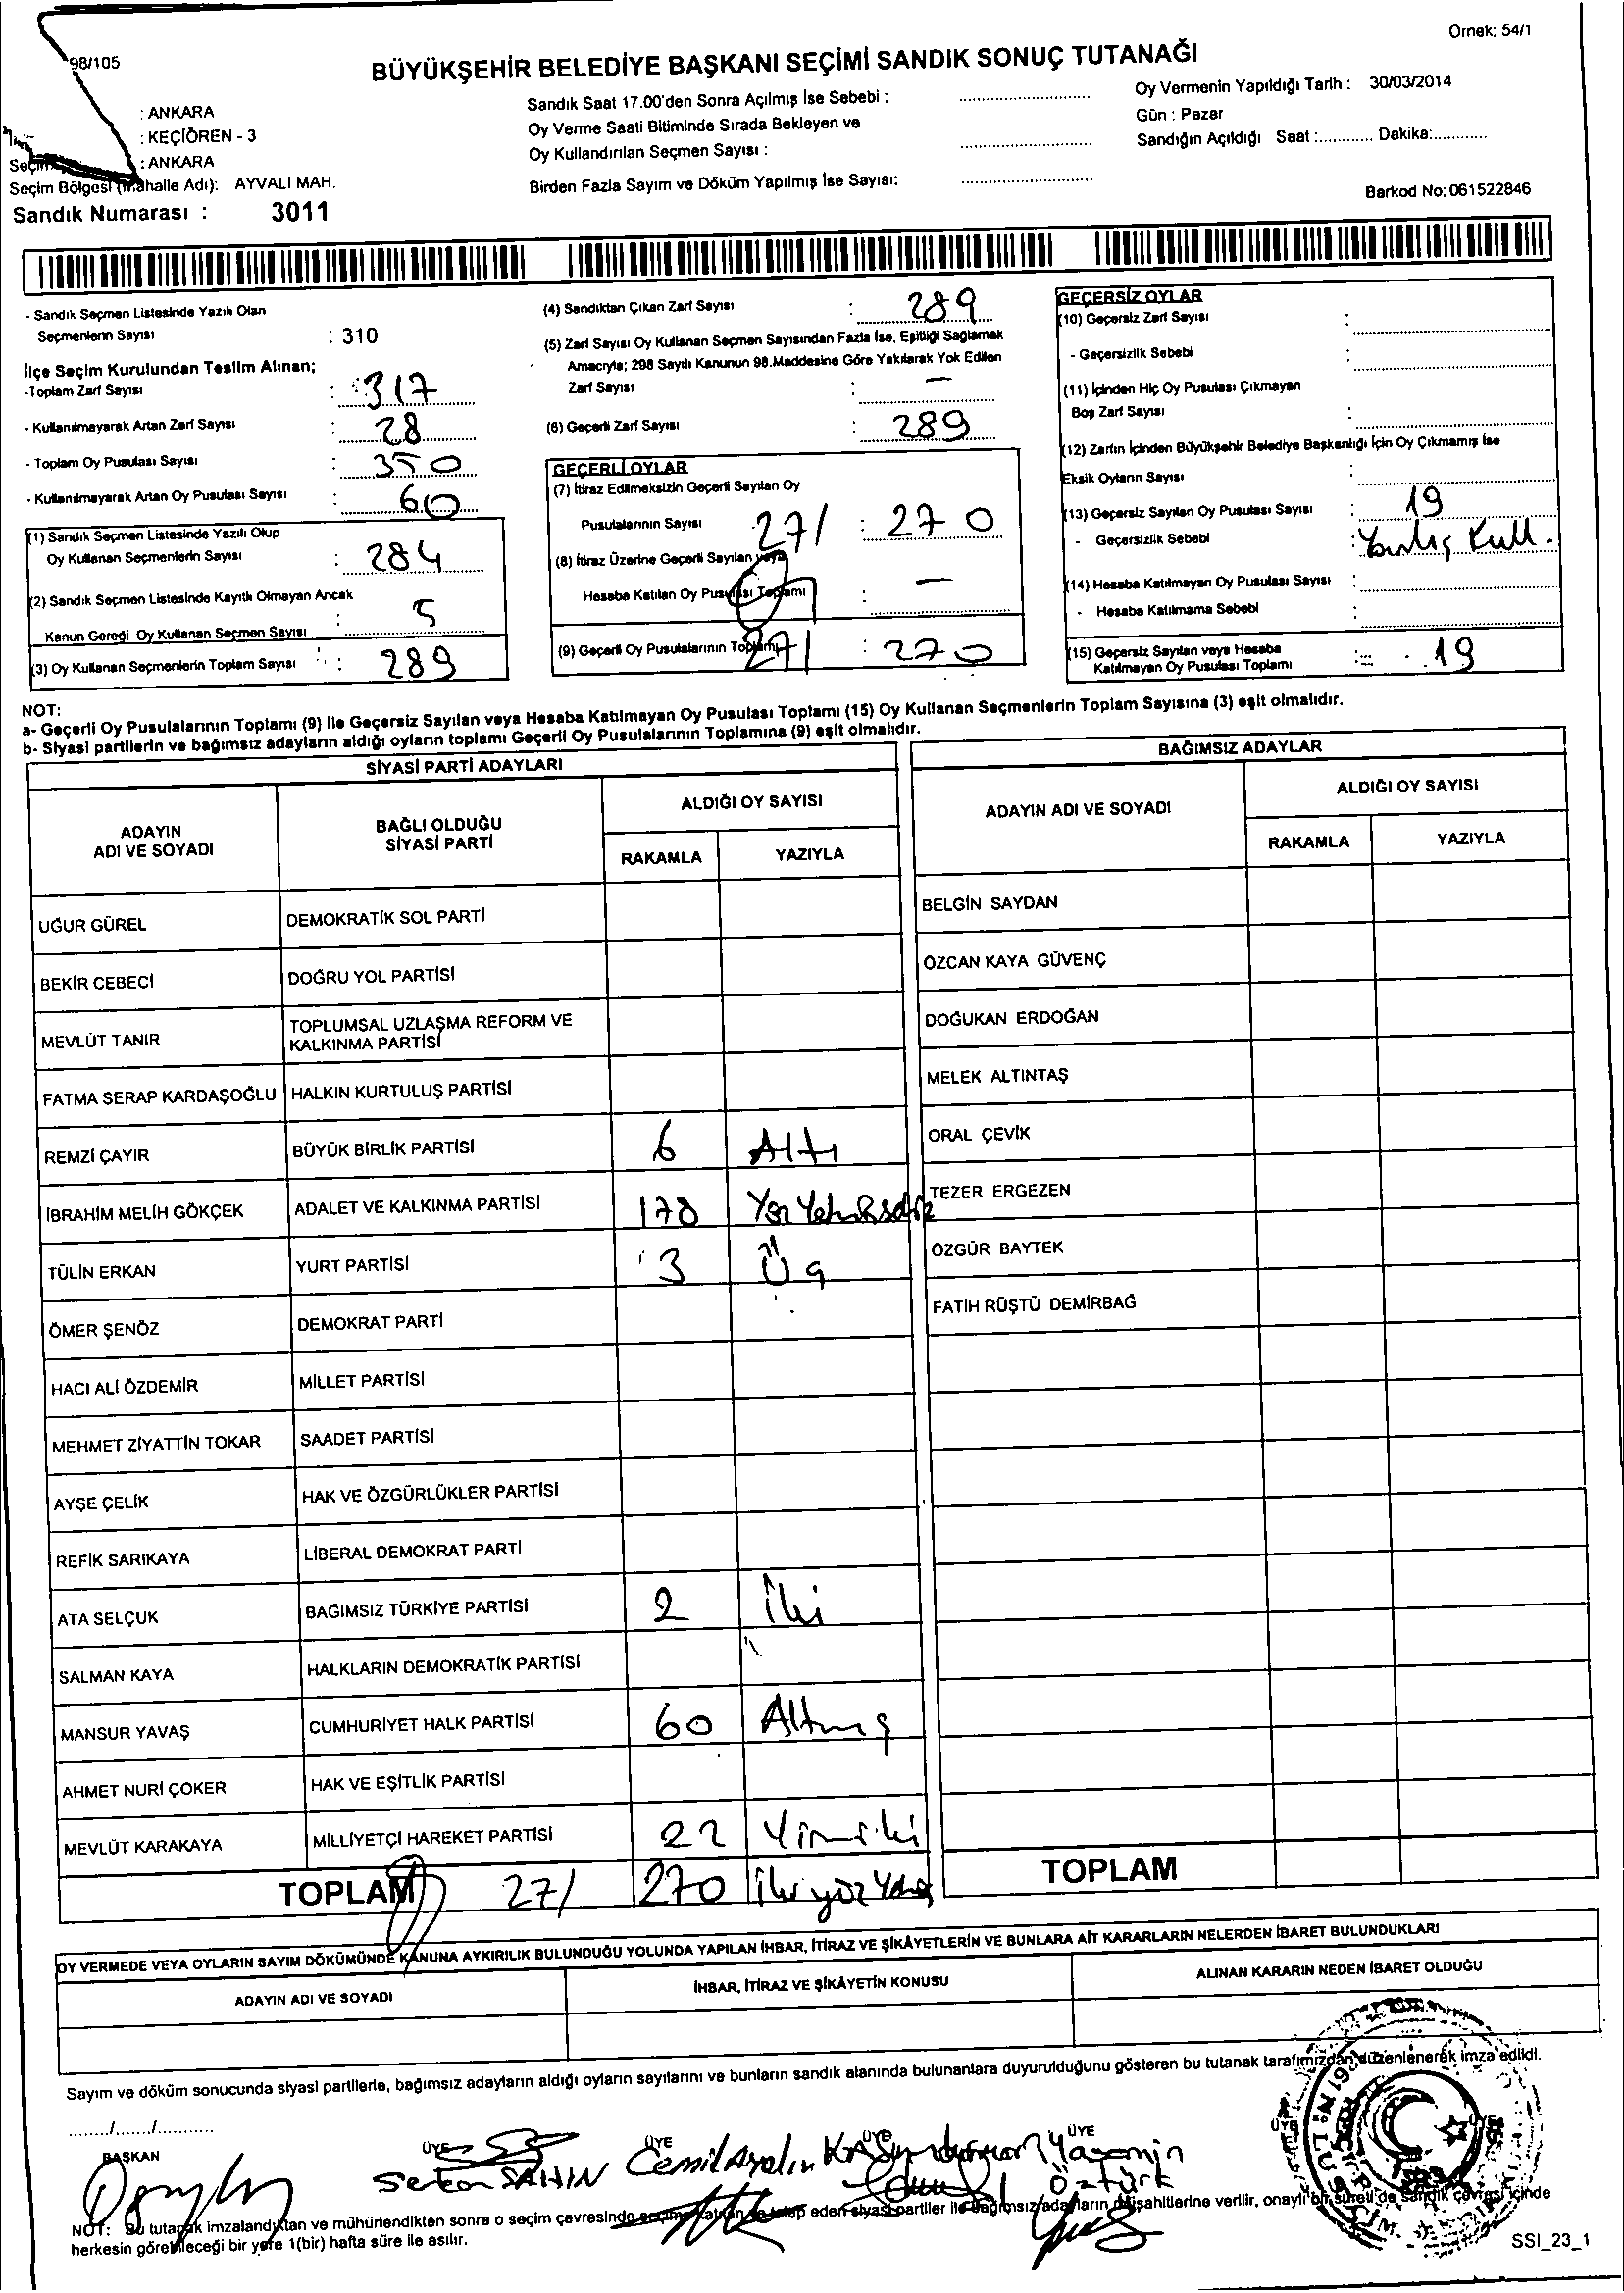 Örnek: 54/1
98/105
BÜYÜKŞEHİR BELEDİYE BAŞKANI SEÇİMİ SANDIK SONUÇ TUTANAĞI
: ANKARA
: KEÇİÖREN - 3
: ANKARA
Seçim Bölgesi (Mahalle Adı): AYVALI MAH.
Sandık Numarası : 3011
Sandık Saat 17.00'den Sonra Açılmış İse Sebebi :
Oy Verme Saati Bitiminde Sırada Bekleyen ve
Oy Kullandırılan Seçmen Sayısı :
Birden Fazla Sayım ve Döküm Yapılmış İse Sayısı:
Oy Vermenin Yapıldığı Tarih : 30/03/2014
Gün : Pazar
Sandığın Açıldığı Saat :............ Dakika:............
Barkod No: 061522846
- Sandık Seçmen Listesinde Yazılı Olan
Seçmenlerin Sayısı : 310
İlçe Seçim Kurulundan Teslim Alınan;
-Toplam Zarf Sayısı : 317
- Kullanılmayarak Artan Zarf Sayısı : 28
- Toplam Oy Pusulası Sayısı : 350
- Kullanılmayarak Artan Oy Pusulası Sayısı : 60
(1) Sandık Seçmen Listesinde Yazılı Olup
Oy Kullanan Seçmenlerin Sayısı : 284
(2) Sandık Seçmen Listesinde Kayıtlı Olmayan Ancak
Kanun Gereği Oy Kullanan Seçmen Sayısı : 5
(3) Oy Kullanan Seçmenlerin Toplam Sayısı : 289
(4) Sandıktan Çıkan Zarf Sayısı : 289
(5) Zarf Sayısı Oy Kullanan Seçmen Sayısından Fazla İse, Eşitliği Sağlamak
Amacıyla; 298 Sayılı Kanunun 98.Maddesine Göre Yakılarak Yok Edilen
Zarf Sayısı : —
(6) Geçerli Zarf Sayısı : 289
GEÇERLİ OYLAR
(7) İtiraz Edilmeksizin Geçerli Sayılan Oy
Pusulalarının Sayısı 271 : 270
(8) İtiraz Üzerine Geçerli Sayılan veya
Hesaba Katılan Oy Pusulası Toplamı : —
(9) Geçerli Oy Pusulalarının Toplamı 271 : 270
GEÇERSİZ OYLAR
(10) Geçersiz Zarf Sayısı :
- Geçersizlik Sebebi :
(11) İçinden Hiç Oy Pusulası Çıkmayan
Boş Zarf Sayısı :
(12) Zarfın İçinden Büyükşehir Belediye Başkanlığı İçin Oy Çıkmamış İse
Eksik Oyların Sayısı :
(13) Geçersiz Sayılan Oy Pusulası Sayısı : 19
- Geçersizlik Sebebi : Yanlış Kull.
(14) Hesaba Katılmayan Oy Pusulası Sayısı :
- Hesaba Katılmama Sebebi :
(15) Geçersiz Sayılan veya Hesaba
Katılmayan Oy Pusulası Toplamı : 19
NOT:
a- Geçerli Oy Pusulalarının Toplamı (9) ile Geçersiz Sayılan veya Hesaba Katılmayan Oy Pusulası Toplamı (15) Oy Kullanan Seçmenlerin Toplam Sayısına (3) eşit olmalıdır.
b- Siyasi partilerin ve bağımsız adayların aldığı oyların toplamı Geçerli Oy Pusulalarının Toplamına (9) eşit olmalıdır.
SİYASİ PARTİ ADAYLARI
ADAYIN ADI VE SOYADI
BAĞLI OLDUĞU SİYASİ PARTİ
ALDIĞI OY SAYISI
RAKAMLA YAZIYLA
UĞUR GÜREL DEMOKRATİK SOL PARTİ
BEKİR CEBECİ DOĞRU YOL PARTİSİ
MEVLÜT TANIR TOPLUMSAL UZLAŞMA REFORM VE KALKINMA PARTİSİ
FATMA SERAP KARDAŞOĞLU HALKIN KURTULUŞ PARTİSİ
REMZİ ÇAYIR BÜYÜK BİRLİK PARTİSİ 6 Altı
İBRAHİM MELİH GÖKÇEK ADALET VE KALKINMA PARTİSİ 178
TÜLİN ERKAN YURT PARTİSİ 3 Üç
ÖMER ŞENÖZ DEMOKRAT PARTİ
HACI ALİ ÖZDEMİR MİLLET PARTİSİ
MEHMET ZİYATTİN TOKAR SAADET PARTİSİ
AYŞE ÇELİK HAK VE ÖZGÜRLÜKLER PARTİSİ
REFİK SARIKAYA LİBERAL DEMOKRAT PARTİ
ATA SELÇUK BAĞIMSIZ TÜRKİYE PARTİSİ 2 İki
SALMAN KAYA HALKLARIN DEMOKRATİK PARTİSİ
MANSUR YAVAŞ CUMHURİYET HALK PARTİSİ 60 Altmış
AHMET NURİ ÇOKER HAK VE EŞİTLİK PARTİSİ
MEVLÜT KARAKAYA MİLLİYETÇİ HAREKET PARTİSİ 22
TOPLAM 271 270
BAĞIMSIZ ADAYLAR
ADAYIN ADI VE SOYADI
ALDIĞI OY SAYISI
RAKAMLA YAZIYLA
BELGİN SAYDAN
ÖZCAN KAYA GÜVENÇ
DOĞUKAN ERDOĞAN
MELEK ALTINTAŞ
ORAL ÇEVİK
TEZER ERGEZEN
ÖZGÜR BAYTEK
FATİH RÜŞTÜ DEMİRBAĞ
TOPLAM
OY VERMEDE VEYA OYLARIN SAYIM DÖKÜMÜNDE KANUNA AYKIRILIK BULUNDUĞU YOLUNDA YAPILAN İHBAR, İTİRAZ VE ŞİKÂYETLERİN VE BUNLARA AİT KARARLARIN NELERDEN İBARET BULUNDUKLARI
ADAYIN ADI VE SOYADI
İHBAR, İTİRAZ VE ŞİKÂYETİN KONUSU
ALINAN KARARIN NEDEN İBARET OLDUĞU
Sayım ve döküm sonucunda siyasi partilerle, bağımsız adayların aldığı oyların sayılarını ve bunların sandık alanında bulunanlara duyurulduğunu gösteren bu tutanak tarafımızdan düzenlenerek imza edildi.
....../....../............
BAŞKAN ÜYE ÜYE ÜYE ÜYE ÜYE
Serkan ŞAHİN Cemil Aydın Yasemin Öztürk
NOT: Bu tutanak imzalandıktan ve mühürlendikten sonra o seçim çevresinde seçime katılan ve talep eden siyasi partiler ile bağımsız adayların müşahitlerine verilir, onaylı bir sureti de sandık çevresi içinde
herkesin görebileceği bir yere 1(bir) hafta süre ile asılır.
SSI_23_1